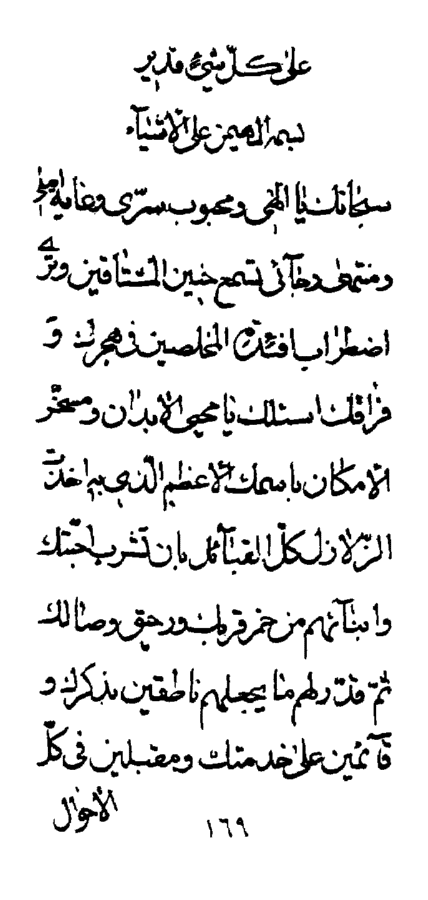 علی کلّ شیئ قدیر
بسمه المهیمن علی الاشیآء
سبحانک یا الهی و محبوب سرّی و غایة املی
و منتهی رجآئی تسمع حنین المشتاقین و تری
اضطراب افئدة المخلصین فی هجرک و
فراقک اسئلک یا محیی الابدان و مسخّر
الامکان باسمک الاعظم الّذی به اخذت
الزّلازل کلّ القبآئل بان تشرب احبّتک
و ابنآئهم من خمر قربک و رحیق وصالک
ثمّ قدّر لهم ما یجعلهم ناطقین بذکرک و
قآئمین علی خدمتک و مقبلین فی کلّ
الاحوال
۱٦۹